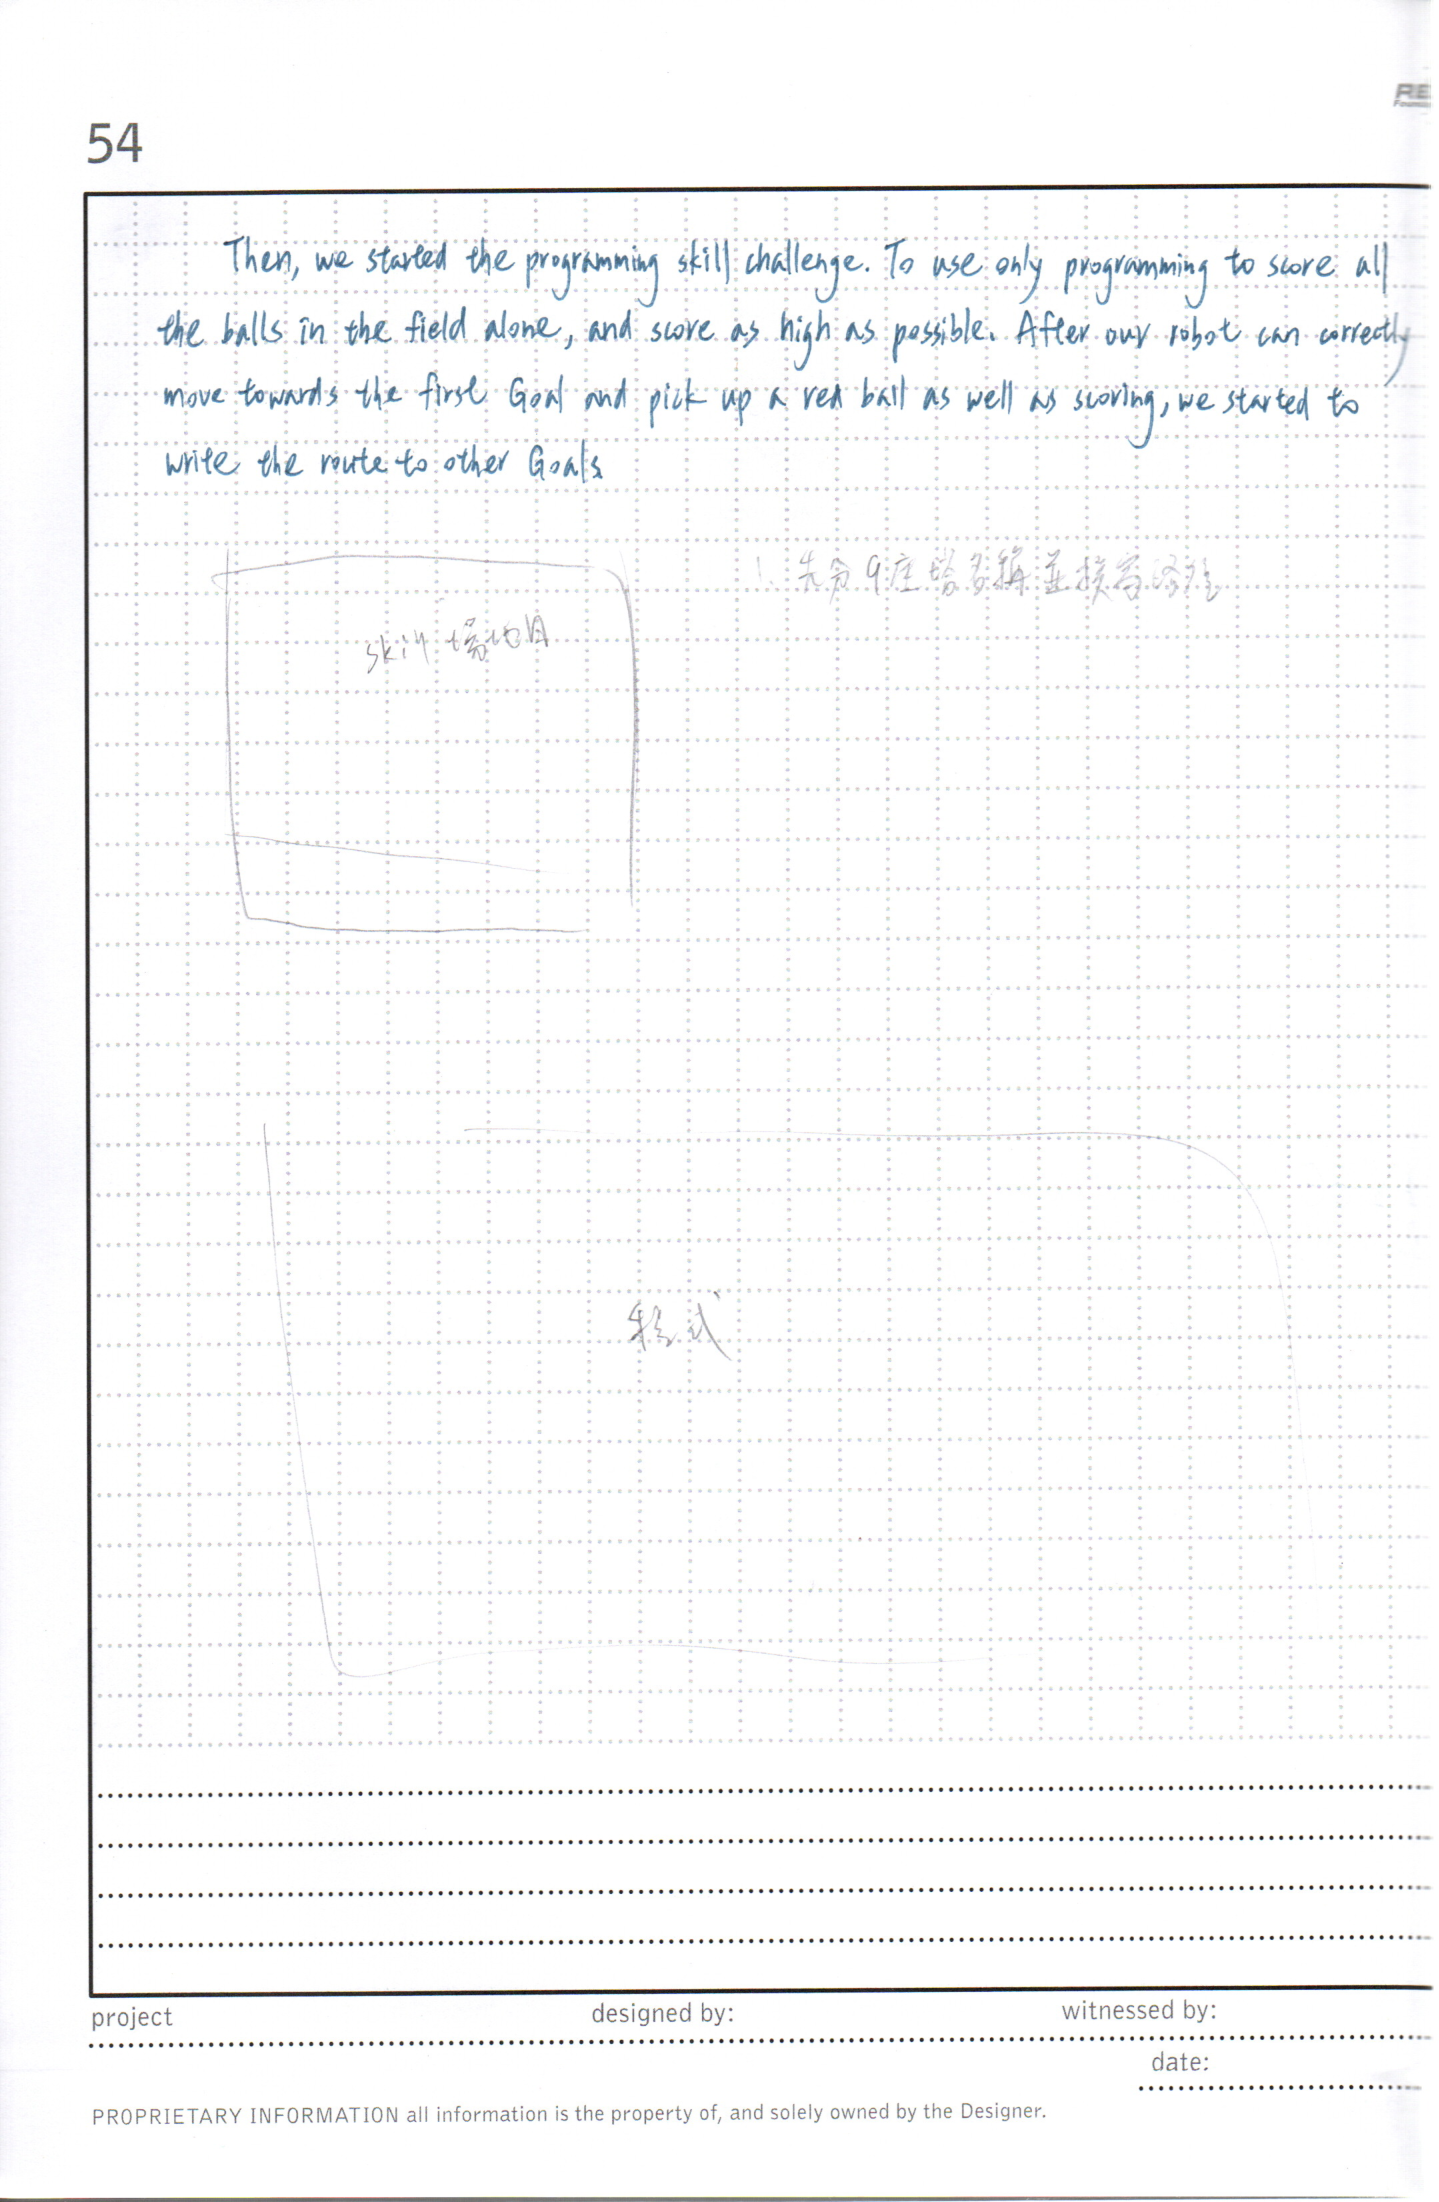 RE
54
Then, we started the programming skill challenge. To use only programming to score all
the balls in the field alone, and score as high as possible. After our robot can correctly
move towards the first Goal and pick up a red ball as well as scoring, we started to
write the route to other Goals
1. 先分9座塔名稱並撰寫路徑
skill 場地
程式
project
designed by:
witnessed by:
date:
PROPRIETARY INFORMATION all information is the property of, and solely owned by the Designer.